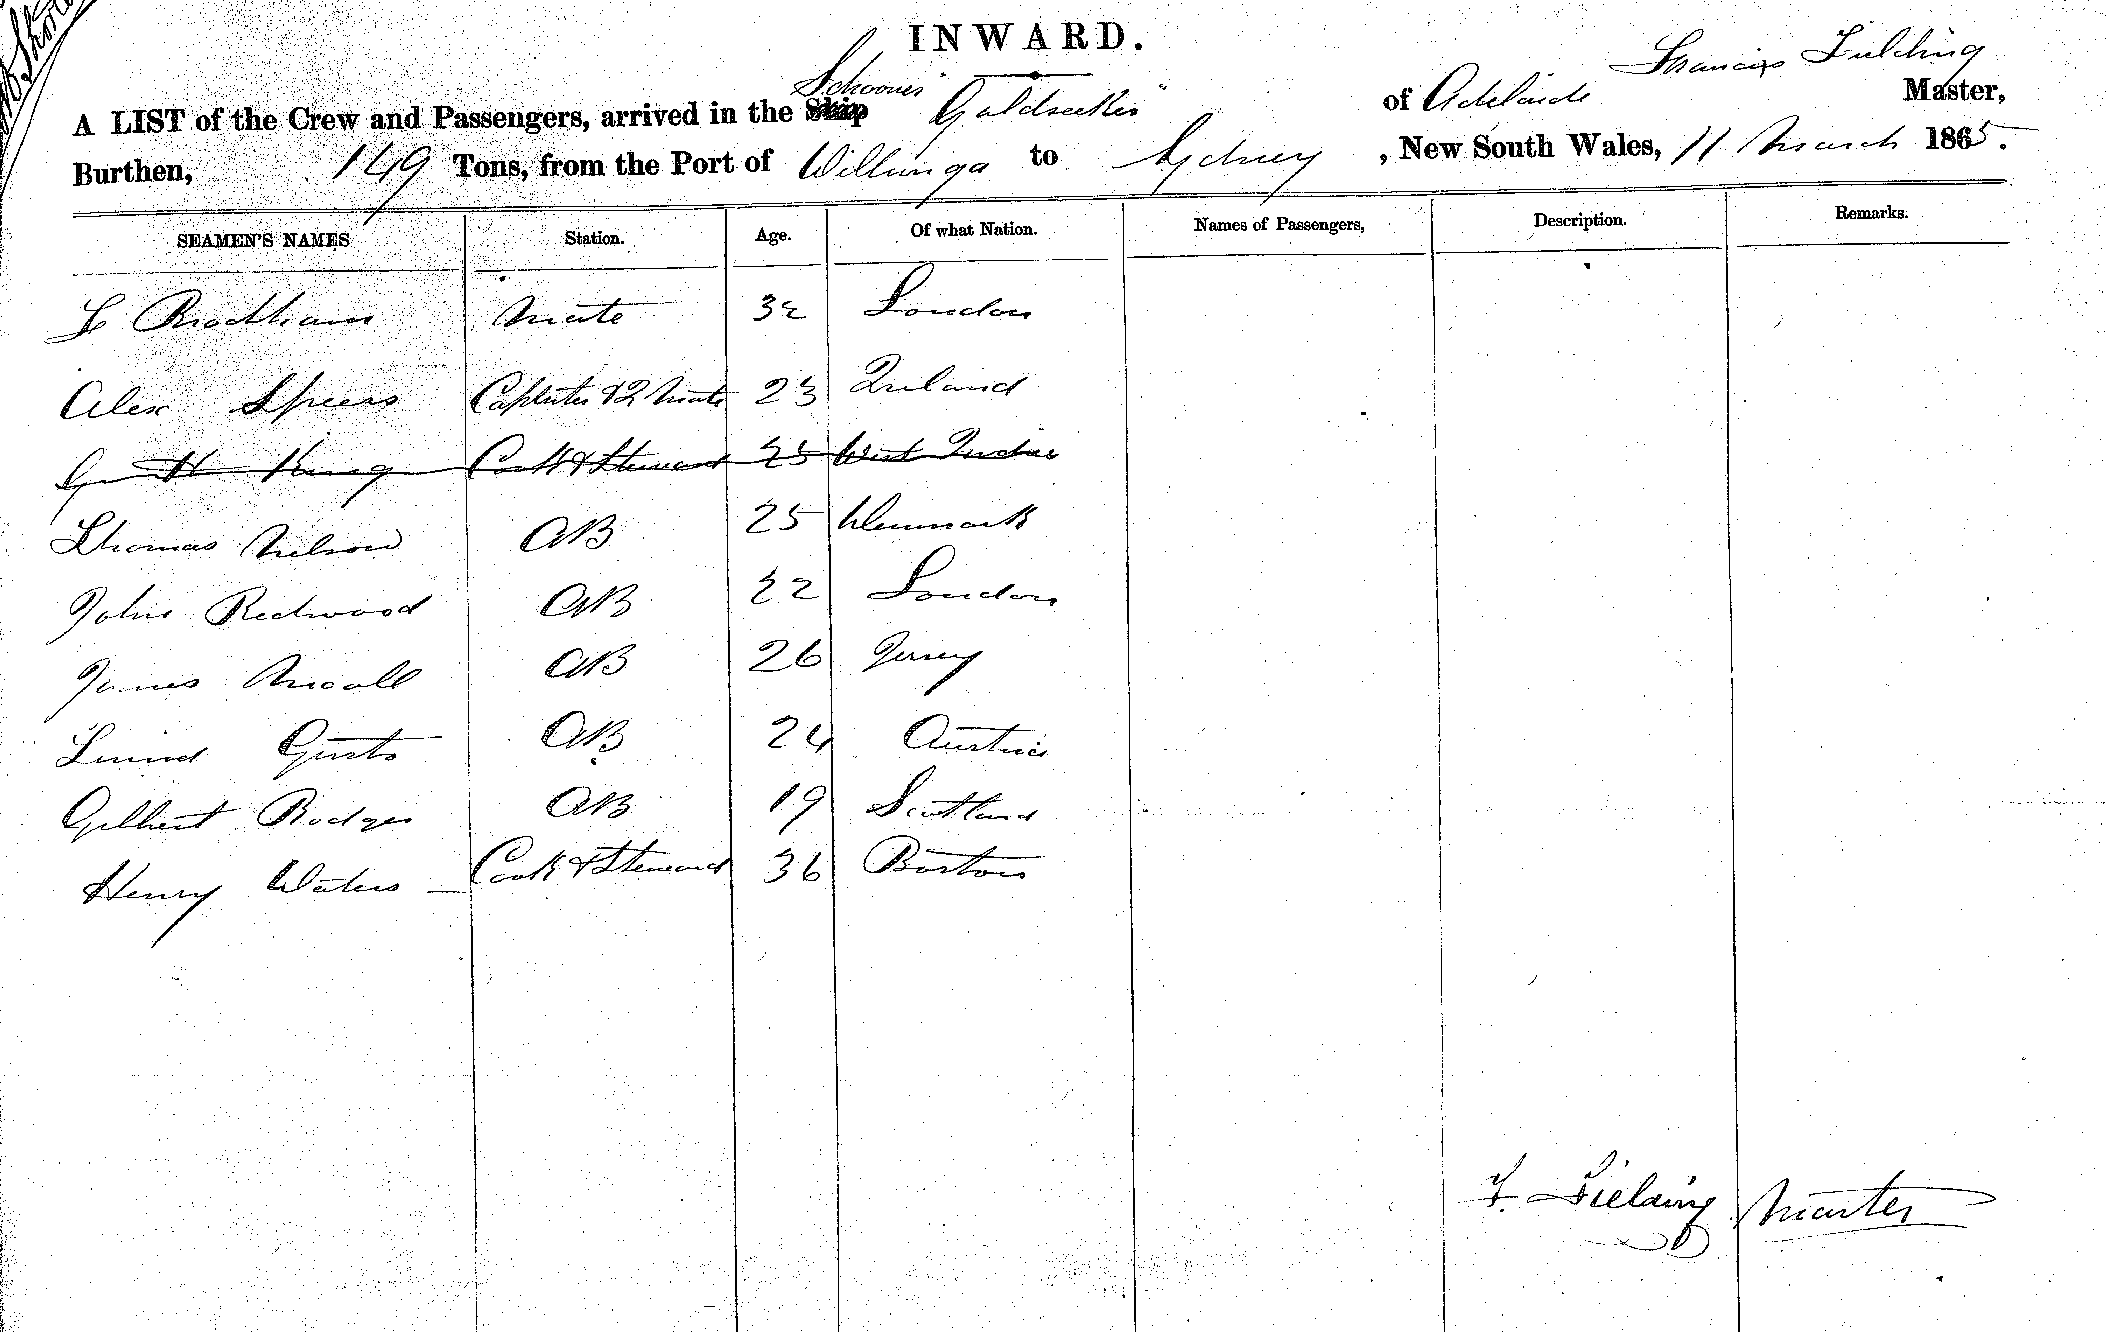 INWARD.
Francis Fielding
A LIST of the Crew and Passengers, arrived in the Ship Schooner "Goldseeker" of Adelaide Master,
Burthen, 149 Tons, from the Port of Willunga to Sydney, New South Wales, 11 March 1865.
SEAMEN'S NAMES Station. Age. Of what Nation. Names of Passengers, Description. Remarks.
Mate 32 London
Alex Speers Carpenter & 2 Mate 23 Ireland
G H King Cook & Steward 25 West Indies
Thomas Nelson AB 25 Denmark
John Redwood AB 22 London
James AB 26 Jersey
AB 24 Austria
Gilbert Rodger AB 19 Scotland
Henry Waters Cook & Steward 36 Boston
F. Fielding Master